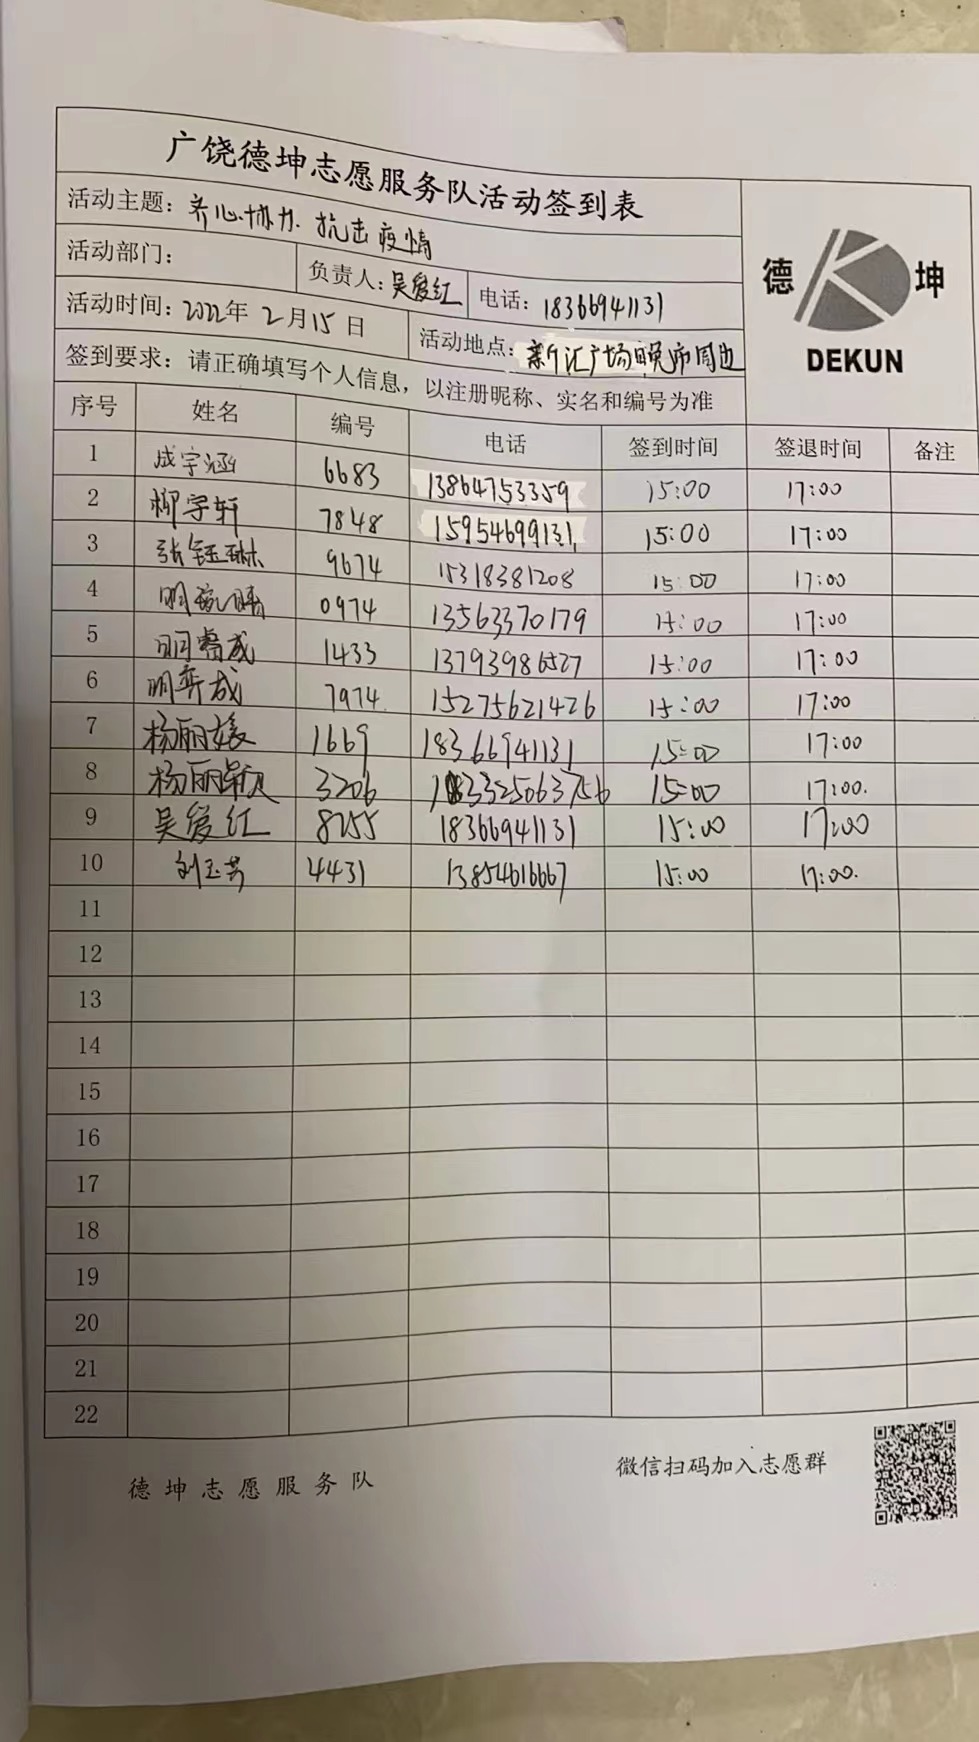 广饶德坤志愿服务队活动签到表
活动主题：齐心协力 抗击疫情
活动部门： 负责人：吴爱红 电话：18366941131
活动时间：2022年2月15日 活动地点：新汇广场晚市周边
签到要求：请正确填写个人信息，以注册昵称、实名和编号为准
德 坤
DEKUN
序号 姓名 编号 电话 签到时间 签退时间 备注
1 成宇涵 6683 13864753359 15:00 17:00
2 柳宇轩 7848 15954699131 15:00 17:00
3 张钰琳 9674 15318381208 15:00 17:00
4 明 0974 13563370179 15:00 17:00
5 明睿成 1433 13793986527 15:00 17:00
6 明弈成 7974 15275621426 15:00 17:00
7 杨丽媛 1669 18366941131 15:00 17:00
8 杨丽颖 3206 15:00 17:00.
9 吴爱红 8255 18366941131 15:00 17:00
10 刘玉芳 4431 13854616667 15:00 17:00.
11
12
13
14
15
16
17
18
19
20
21
22
德坤志愿服务队
微信扫码加入志愿群